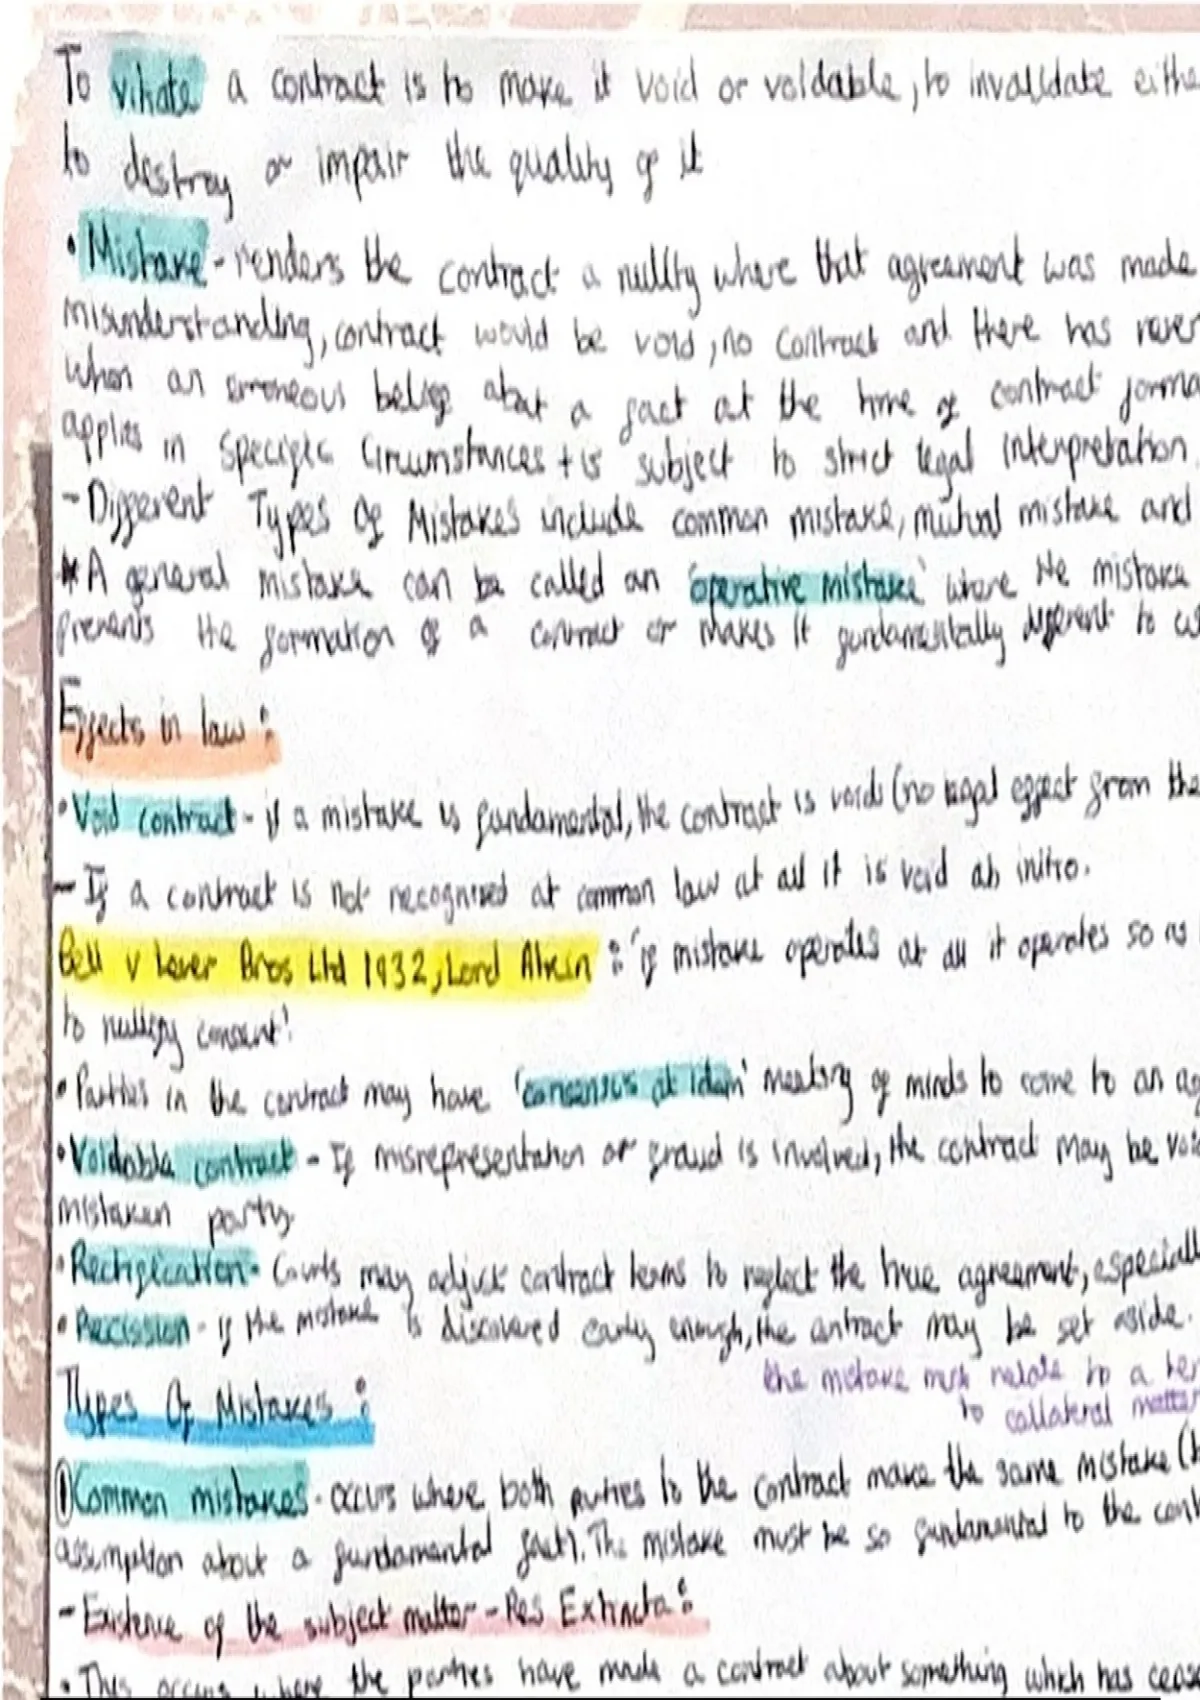 To vitiate a contract is to make it void or voidable, to invalidate eithe
to destroy or impair the quality of it
• Mistake - renders the contract a nullity where that agreement was made
misunderstanding, contract would be void, no contract and there has never
when an erroneous belief about a fact at the time of contract forma
applies in specific circumstances + is subject to strict legal interpretation.
- Different Types Of Mistakes include common mistake, mutual mistake and
* A general mistake can be called an 'operative mistake' where the mistake
prevents the formation of a contract or makes it fundamentally different to w
Effects in law :
• Void contract - if a mistake is fundamental, the contract is voids (no legal effect from the
- If a contract is not recognised at common law at all it is void ab initio.
Bell v Lever Bros Ltd 1932, Lord Atkin : 'if mistake operates at all it operates so as
to nullify consent'
• Parties in the contract may have 'consensus at idem' meeting of minds to come to an ag
• Voidable contract - If misrepresentation or fraud is involved, the contract may be voi
mistaken party
• Rectification - Courts may adjust contract terms to reflect the true agreement, especiall
• Recission - if the mistake is discovered early enough, the contract may be set aside.
the mistake must relate to a ter
to collateral matter
Types Of Mistakes :
① Common mistakes - occurs where both parties to the contract make the same mistake (
assumption about a fundamental fact). The mistake must be so fundamental to the cont
- Existence of the subject matter - Res Extincta :
• This occurs where the parties have made a contract about something which has ceas